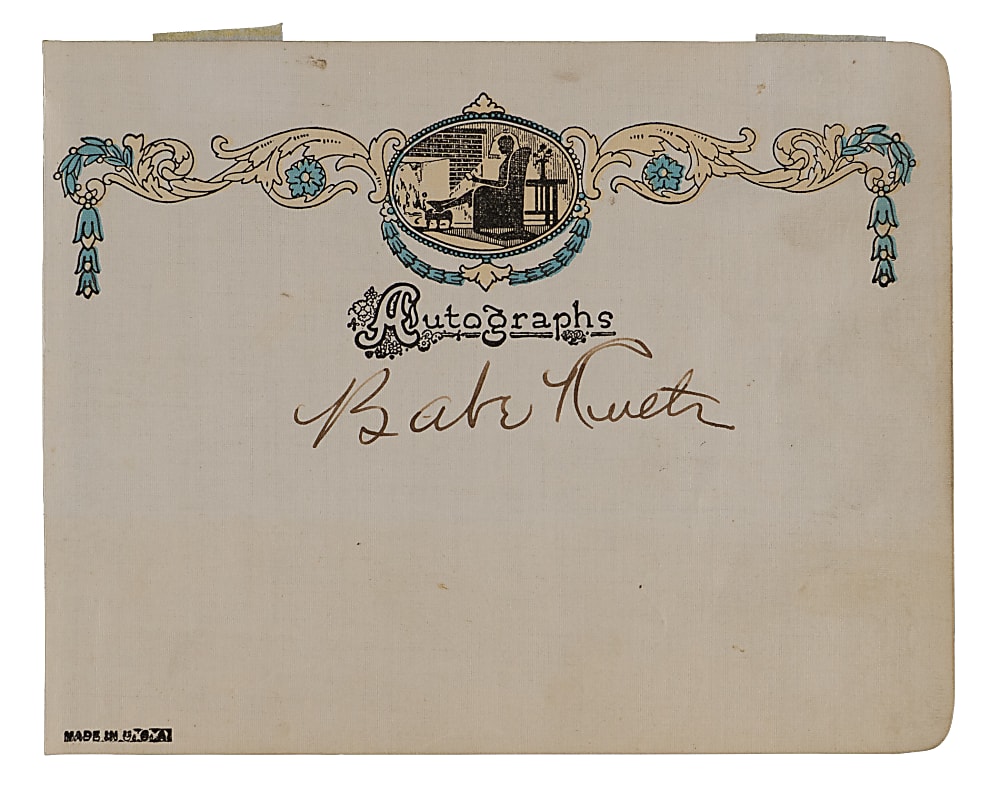 Autographs
Babe Ruth
MADE IN U.S.A.